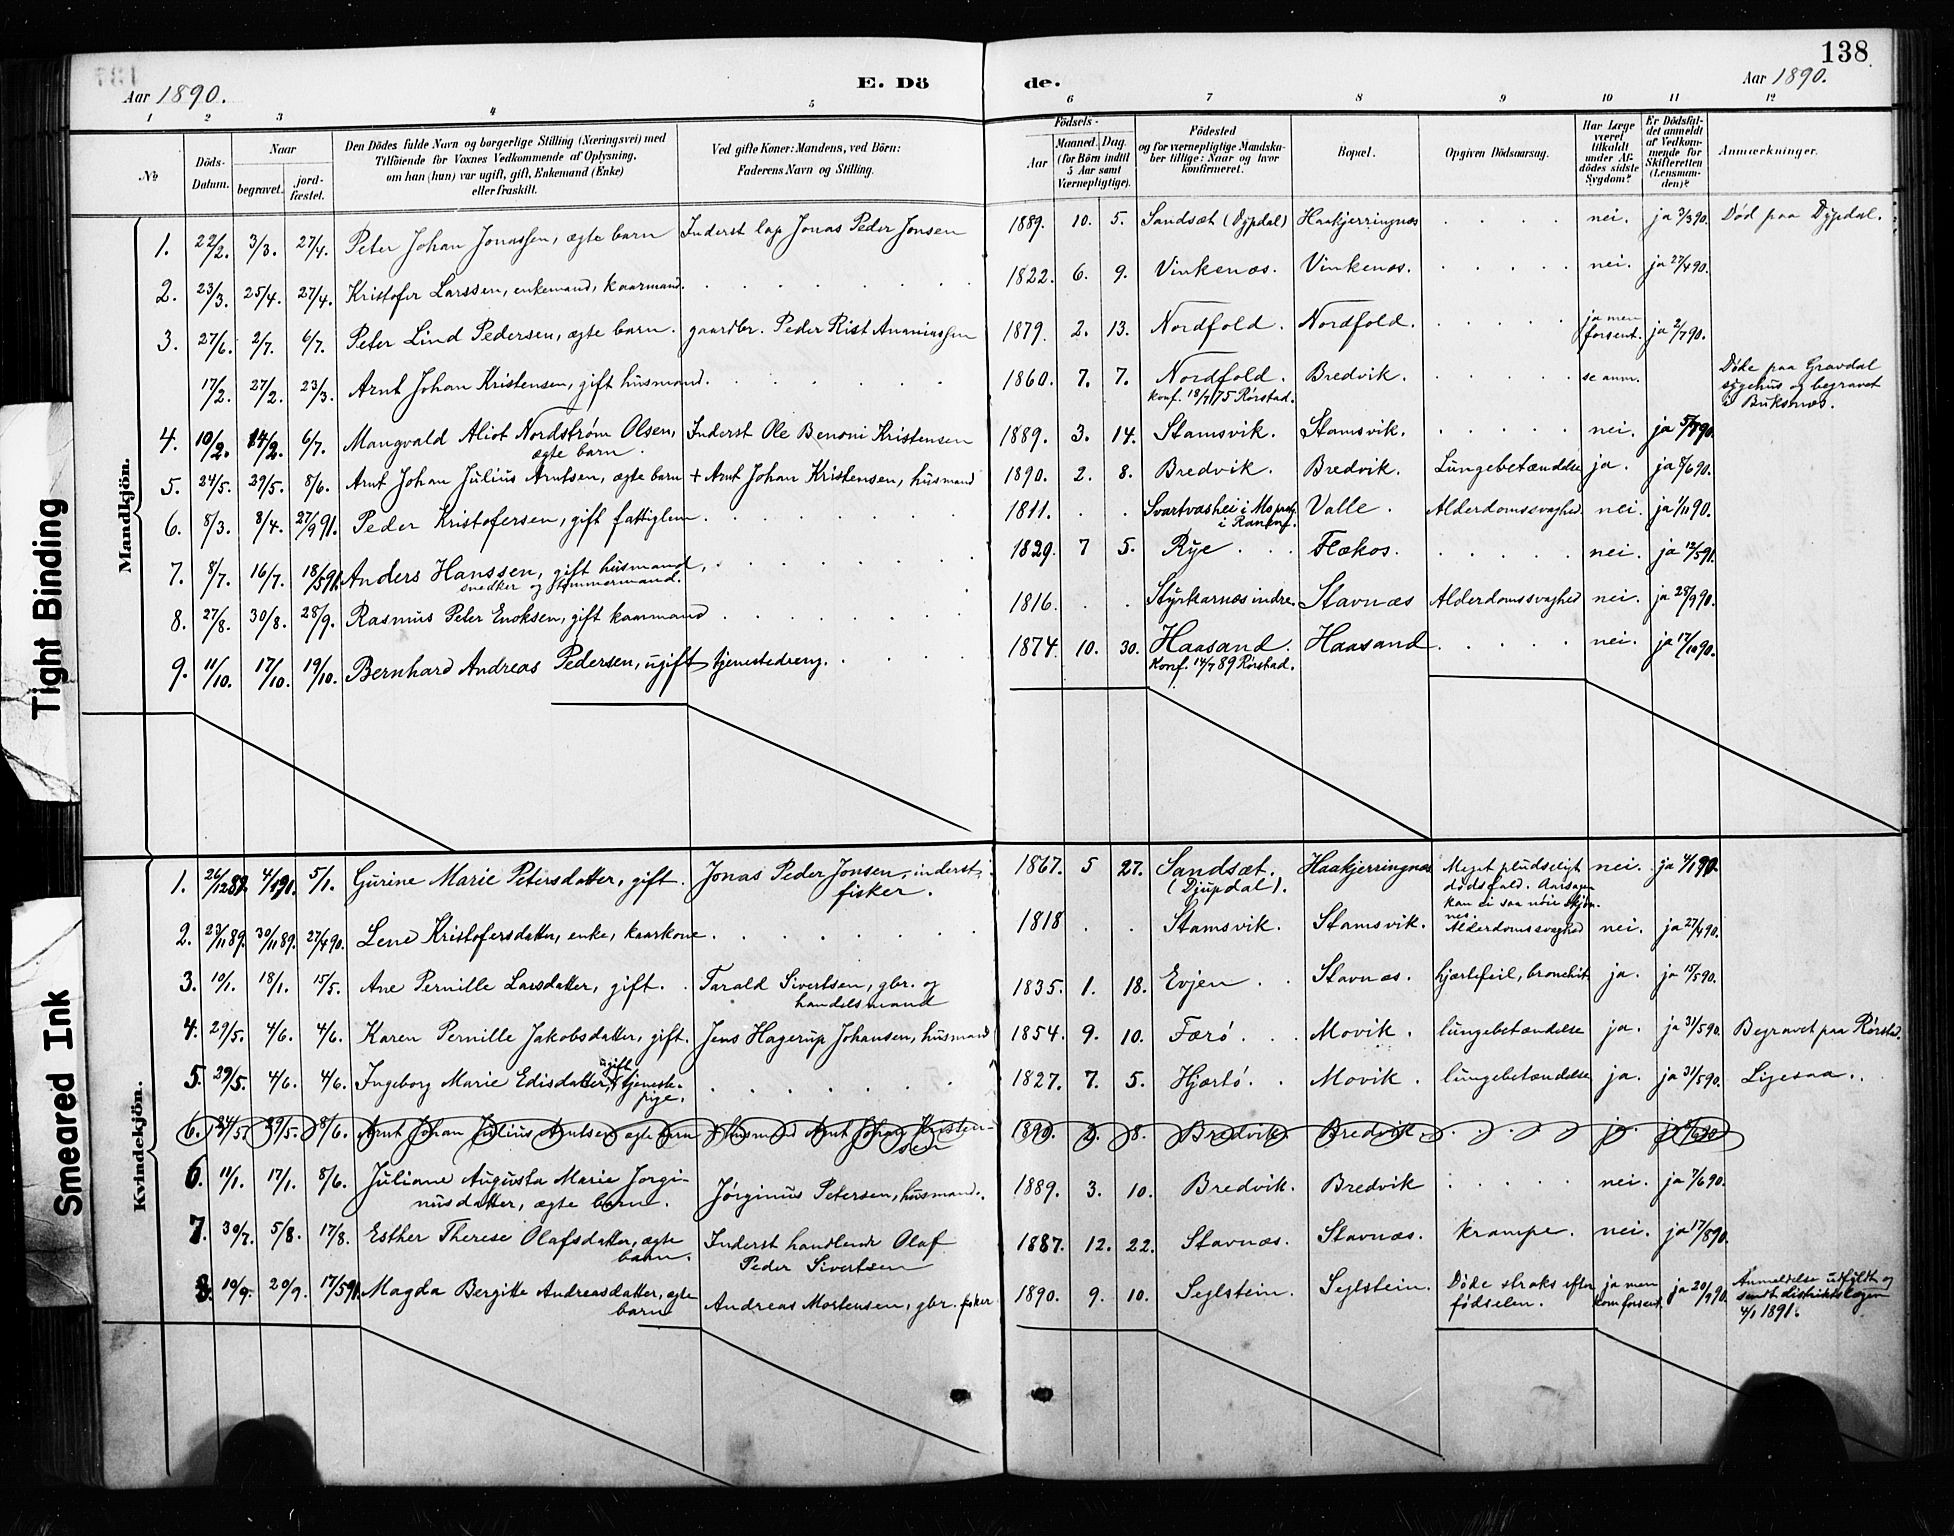 138
Aar 1890.
E. Dö
de.
Aar 1890.
1 2 3 4 5 6 7 8 9 10 11 12
№
Döds-Datum.
Naar
begravet.
jord-fæstet.
Den Dödes fulde Navn og borgerlige Stilling (Næringsvei) med
Tilföiende for Voxnes Vedkommende af Oplysning,
om han (hun) var ugift, gift, Enkemand (Enke)
eller fraskilt.
Ved gifte Koner: Mandens, ved Börn:
Faderens Navn og Stilling.
Födsels-
Aar
Maaned. Dag
(for Börn indtil
5 Aar samt
Værnepligtige).
Födested
og for værnepligtige Mandska-
ber tillige: Naar og hvor
konfirmeret.
Bopæl.
Opgiven Dödsaarsag.
Har Læge
været
tilkaldt
under Af-
dödes sidste
Sygdom?
Er Dödsfal-
det anmeldt
af Vedkom-
mende for
Skifteretten
(Lensman-
den)?
Anmærkninger.
Mandkjön.
1. 22/2. 3/3. 27/4. Peter Johan Jonassen, ægte barn Inderst lap Jonas Peder Jonsen 1889. 10. 5. Sandsæt (Dypdal) Haakjerringnæs nei. ja 3/3 90. Død paa Dypdal.
2. 23/3. 25/4. 27/4. Kristofer Larssen, enkemand, kaarmand. 1822. 6. 9. Vinkenæs. Vinkenæs. nei. ja 27/4 90.
3. 27/6. 2/7. 6/7. Peter Lind Pedersen, ægte barn. gaardbr. Peder Rist Ananiassen 1879. 2. 13. Nordfold. Nordfold. ja men forsent. ja 2/7 90.
17/2. 27/2. 23/3. Arnt Johan Kristensen, gift husmand. 1860. 7. 7. Nordfold. Bredvik. se anm. Døde paa Gravdal
konf. 18/7 75 Rørstad. sygehus og begravet
i Buksnæs.
4. 10/2. 14/2. 6/7. Mangvald Aliot Nordstrøm Olsen, Inderst Ole Benoni Kristensen 1889. 3. 14. Stamsvik. Stamsvik. nei. ja 5/7 90.
ægte barn.
5. 24/5. 29/5. 8/6. Arnt Johan Julius Arntsen, ægte barn + Arnt Johan Kristensen, husmand 1890. 2. 8. Bredvik. Bredvik. Lungebetændelse ja. ja 7/6 90.
6. 8/3. 8/4. 27/9 91. Peder Kristofersen, gift fattiglem. 1811. Svartvashei i Mo præg. Valle. Alderdomssvaghed nei. ja 1/11 90.
i Ranen.
7. 8/7. 16/7. 18/5 91. Anders Hanssen, gift husmand, 1829. 7 5. Rye. Flækos. nei. ja 12/5 91.
snedker og tømmermand.
8. 27/8. 30/8. 28/9. Rasmus Peter Enoksen, gift kaarmand 1816. Styrkarnæs indre. Stavnæs Alderdomssvaghed nei. ja 28/9 90.
9. 11/10. 17/10. 19/10. Bernhard Andreas Pedersen, ugift tjenestedreng. 1874. 10. 30. Haasand. Haasand nei. ja 17/10 90.
Konf. 14/7 89 Rørstad.
Kvindekjön.
1. 26/12 89. 4/1 90. 5/1. Gurine Marie Petersdatter, gift. Jonas Peder Jonsen, inderst, fisker. 1867. 5 27. Sandsæt. (Djupdal). Haakjerringnæs Meget pludseligt nei. ja 4/1 90.
dødsfald. Aarsagen
kan ei saa nøie skjøn-
nes.
2. 23/11 89. 30/11 89. 27/4 90. Lene Kristofersdatter, enke, kaarkone 1818 Stamsvik. Stamsvik. Alderdomssvaghed nei. ja 27/4 90.
3. 10/1. 18/1. 15/5. Ane Pernille Larsdatter, gift. Tarald Sivertsen, gbr. og handelsmand 1835. 1. 18. Evjen. Stavnæs. hjærtefeil, bronchit ja. ja 15/5 90.
4. 29/5. 4/6. 4/6. Karen Pernille Jakobsdatter, gift. Jens Hagerup Johansen, husmand 1854. 9. 10. Færø. Movik. lungebetændelse ja. ja 31/5 90. Begravet paa Rørstad.
5. 29/5. 4/6. 4/6. Ingeborg Marie Edisdatter, ugift tjeneste-pige. 1827. 7. 5. Hjærtø. Movik. lungebetændelse ja. ja 31/5 90. Ligesaa.
6. 24/5. 29/5. 8/6. Arnt Johan Julius Arntsen ægte barn + husmand Arnt Johan Kristen-sen 1890. 2. 8. Bredvik. Bredvik. ja. ja 7/6 90
6. 11/1. 17/1. 8/6. Juliane Augusta Marie Jørgi-
nusdatter, ægte barn. Jørginus Petersen, husmand. 1889. 3. 10. Bredvik. Bredvik nei. ja 7/6 90.
7. 30/7. 5/8. 17/8. Esther Therese Olafsdatter, ægte barn. Inderst handlende Olaf
Peder Sivertsen 1887. 12. 22. Stavnæs. Stavnæs. Krampe. nei. ja 17/8 90.
8. 10/9. 20/9. 17/5 91. Magda Bergitte Andreasdatter, ægte barn Andreas Mortensen, gbr. fisker 1890. 9. 10. Seglstein. Seglstein. Døde straks efter fødselen. ja men kom forsent. ja 20/9 90. Anmeldelse udfyldt og
sendt distriktslægen
4/1 1891.
Tight Binding
Smeared Ink